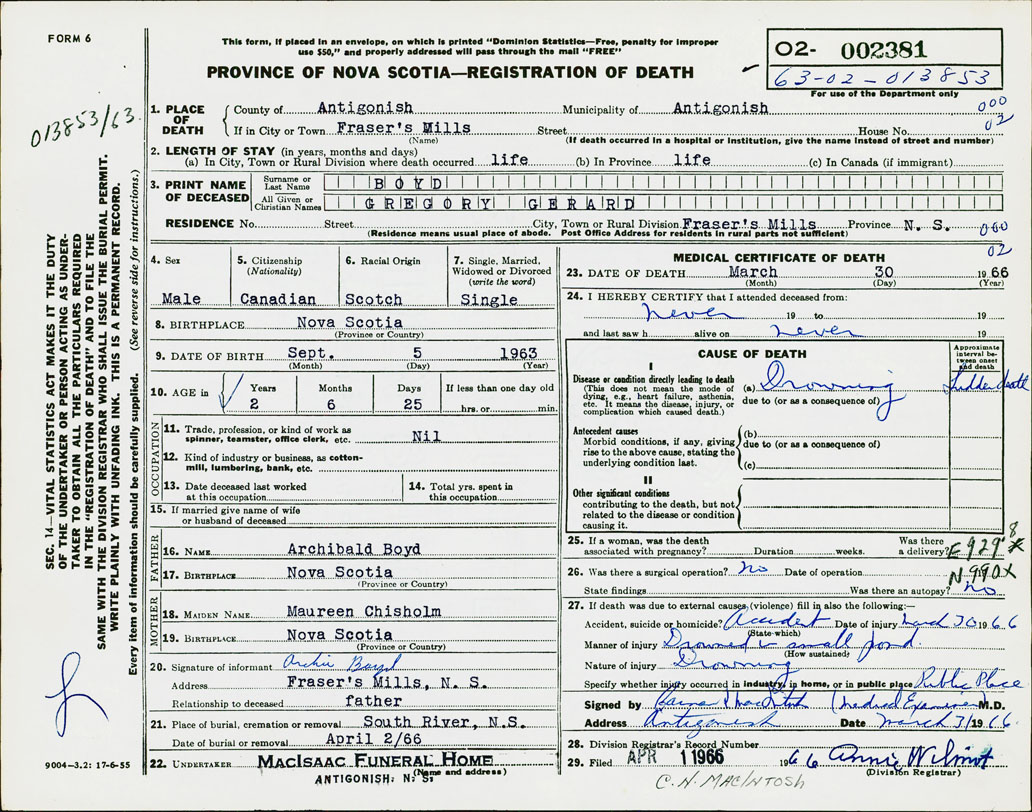 FORM 6
This form, if placed in an envelope, on which is printed "Dominion Statistics—Free, penalty for improper
use $50," and properly addressed will pass through the mail "FREE"
PROVINCE OF NOVA SCOTIA—REGISTRATION OF DEATH
02- 002381
63-02-013853
For use of the Department only
013853/63.
SEC. 14—VITAL STATISTICS ACT MAKES IT THE DUTY
OF THE UNDERTAKER OR PERSON ACTING AS UNDER-
TAKER TO OBTAIN ALL THE PARTICULARS REQUIRED
IN THE "REGISTRATION OF DEATH" AND TO FILE THE
SAME WITH THE DIVISION REGISTRAR WHO SHALL ISSUE THE BURIAL PERMIT.
WRITE PLAINLY WITH UNFADING INK. THIS IS A PERMANENT RECORD.
Every item of information should be carefully supplied. (See reverse side for instructions.)
9004-3.2: 17-6-55
1. PLACE OF DEATH
County of Antigonish Municipality of Antigonish 000
If in City or Town Fraser's Mills Street House No. 02
(Name) (If death occurred in a hospital or institution, give the name instead of street and number)
2. LENGTH OF STAY (in years, months and days)
(a) In City, Town or Rural Division where death occurred life (b) In Province life (c) In Canada (if immigrant)
3. PRINT NAME OF DECEASED
Surname or Last Name BOYD
All Given or Christian Names GREGORY GERARD
RESIDENCE No. Street City, Town or Rural Division Fraser's Mills Province N. S. 000
(Residence means usual place of abode. Post Office Address for residents in rural parts not sufficient) 02
4. Sex
Male
5. Citizenship
(Nationality)
Canadian
6. Racial Origin
Scotch
7. Single, Married,
Widowed or Divorced
(write the word)
Single
8. BIRTHPLACE Nova Scotia
(Province or Country)
9. DATE OF BIRTH Sept. 5 1963
(Month) (Day) (Year)
10. AGE in Years Months Days If less than one day old
2 6 25 hrs. or min.
OCCUPATION
11. Trade, profession, or kind of work as
spinner, teamster, office clerk, etc. Nil
12. Kind of industry or business, as cotton-
mill, lumbering, bank, etc.
13. Date deceased last worked
at this occupation
14. Total yrs. spent in
this occupation
15. If married give name of wife
or husband of deceased
FATHER
16. NAME Archibald Boyd
17. BIRTHPLACE Nova Scotia
(Province or Country)
MOTHER
18. MAIDEN NAME Maureen Chisholm
19. BIRTHPLACE Nova Scotia
(Province or Country)
20. Signature of informant Archie Boyd
Address Fraser's Mills, N. S.
Relationship to deceased father
21. Place of burial, cremation or removal South River, N.S.
Date of burial or removal April 2/66
22. UNDERTAKER MACISAAC FUNERAL HOME
(Name and address)
ANTIGONISH, N. S.
MEDICAL CERTIFICATE OF DEATH
23. DATE OF DEATH March 30 1966
(Month) (Day) (Year)
24. I HEREBY CERTIFY that I attended deceased from:
never 19 to 19
and last saw h alive on never 19
CAUSE OF DEATH
Approximate
interval be-
tween onset
and death
I
Disease or condition directly leading to death
(This does not mean the mode of
dying, e.g., heart failure, asthenia,
etc. It means the disease, injury, or
complication which caused death.)
(a) Drowning Sudden death
due to (or as a consequence of)
Antecedent causes
Morbid conditions, if any, giving
rise to the above cause, stating the
underlying condition last.
(b)
due to (or as a consequence of)
(c)
II
Other significant conditions
contributing to the death, but not
related to the disease or condition
causing it.
25. If a woman, was the death
associated with pregnancy? Duration weeks. Was there
a delivery? E929 8
26. Was there a surgical operation? No Date of operation N990X
State findings Was there an autopsy? no
27. If death was due to external causes (violence) fill in also the following:—
Accident, suicide or homicide? Accident Date of injury March 30 1966
(State which)
Manner of injury Drowned in small pond.
(How sustained)
Nature of injury Drowning
Specify whether injury occurred in industry, in home, or in public place Public Place
Signed by (Medical Examiner) M.D.
Address Antigonish Date March 31 1966.
28. Division Registrar's Record Number
29. Filed APR 1 1966 1966 Annie Wilmot
(Division Registrar)
C. N. MACINTOSH